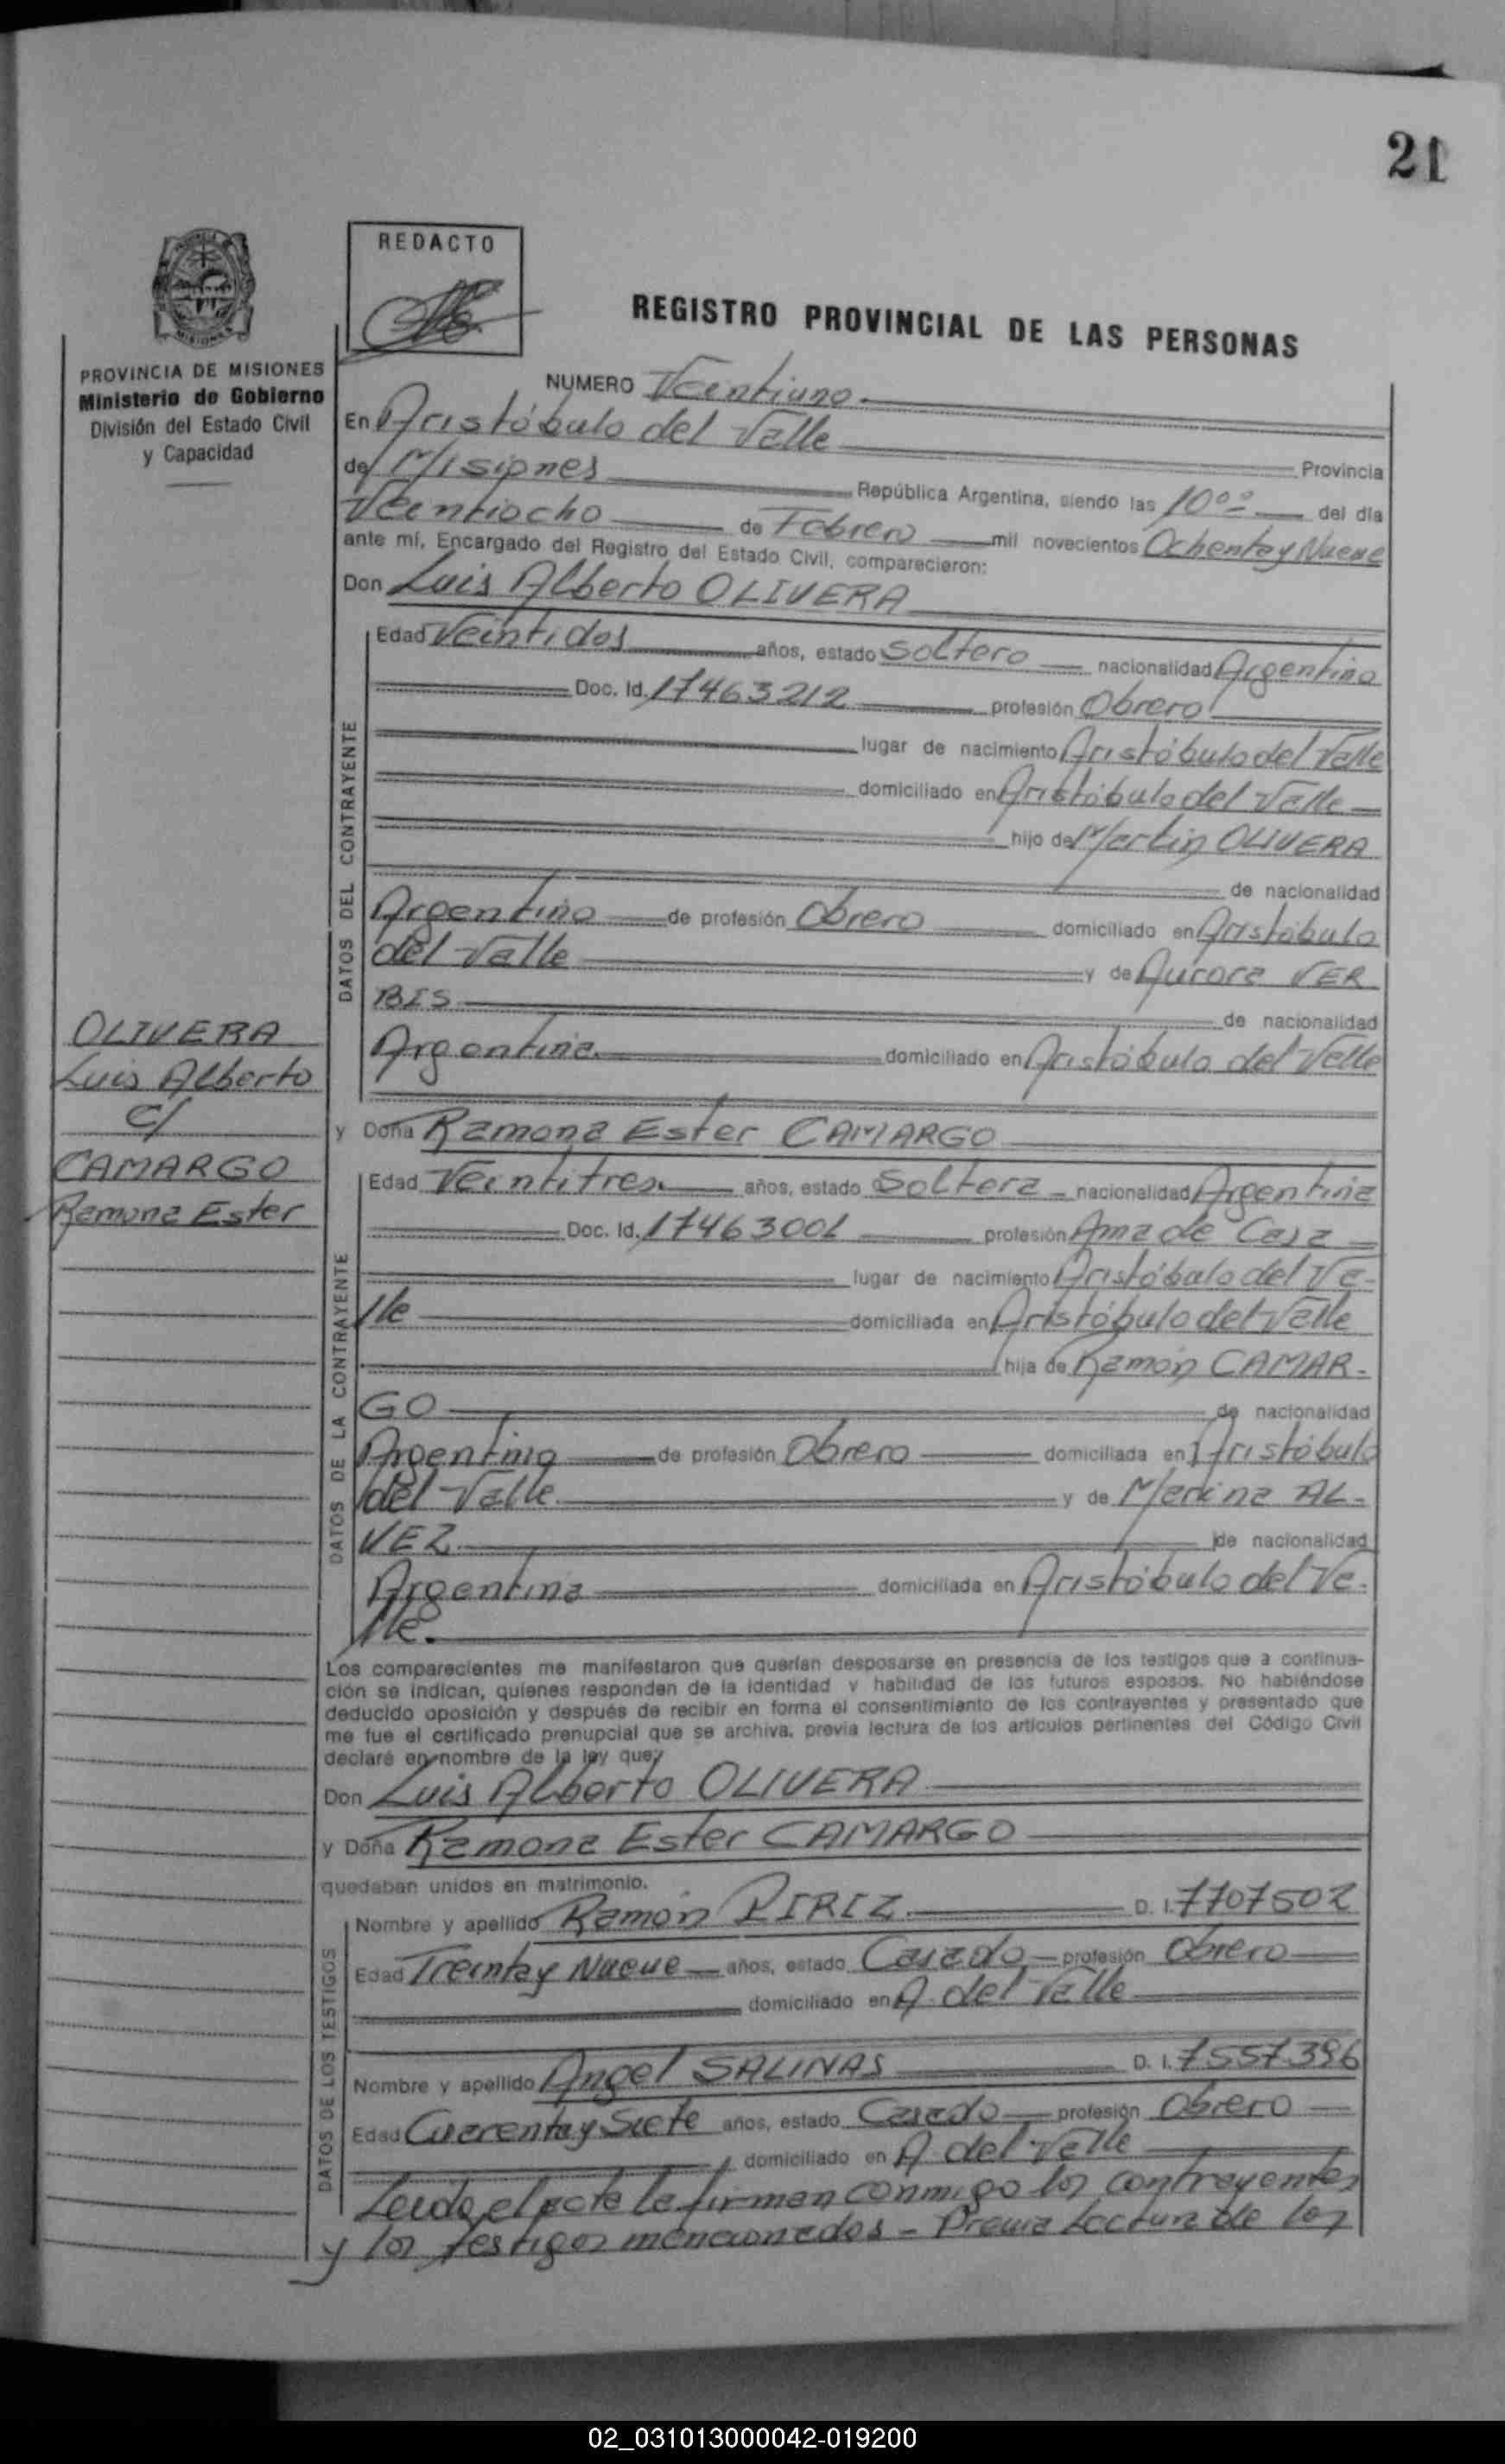 21
REDACTO
REGISTRO PROVINCIAL DE LAS PERSONAS
PROVINCIA DE MISIONES
Ministerio de Gobierno
División del Estado Civil
y Capacidad
NUMERO Veintiuno
En Aristóbulo del Valle
de Misiones Provincia
República Argentina, siendo las 10°° del día
Veintiocho de Febrero mil novecientos Ochenta y Nueve
ante mí, Encargado del Registro del Estado Civil, comparecieron:
Don Luis Alberto OLIVERA
DATOS DEL CONTRAYENTE
Edad Veintidos años, estado Soltero nacionalidad Argentina
Doc. Id. 17463212 profesión Obrero
lugar de nacimiento Aristóbulo del Valle
domiciliado en Aristóbulo del Valle
hijo de Martin OLIVERA
de nacionalidad
Argentina de profesión Obrero domiciliado en Aristóbulo
del Valle y de Aurora VER
BIS de nacionalidad
Argentina domiciliado en Aristóbulo del Valle
OLIVERA
Luis Alberto
c/
CAMARGO
Ramona Ester
y Doña Ramona Ester CAMARGO
DATOS DE LA CONTRAYENTE
Edad Veintitres años, estado Soltera nacionalidad Argentina
Doc. Id. 17463001 profesión Ama de Casa
lugar de nacimiento Aristóbulo del Va-
lle domiciliada en Aristóbulo del Valle
hija de Ramón CAMAR-
GO de nacionalidad
Argentina de profesión Obrero domiciliada en Aristóbulo
del Valle y de Marina AL-
VEZ de nacionalidad
Argentina domiciliada en Aristóbulo del Va-
lle.
Los comparecientes me manifestaron que querían desposarse en presencia de los testigos que a continua-
ción se indican, quienes responden de la identidad y habilidad de los futuros esposos. No habiéndose
deducido oposición y después de recibir en forma el consentimiento de los contrayentes y presentado que
me fue el certificado prenupcial que se archiva, previa lectura de los artículos pertinentes del Código Civil
declaré en nombre de la ley que,
Don Luis Alberto OLIVERA
y Doña Ramona Ester CAMARGO
quedaban unidos en matrimonio.
DATOS DE LOS TESTIGOS
Nombre y apellido Ramón PIRIZ D. I. 7707502
Edad Treinta y Nueve años, estado Casado profesión Obrero
domiciliado en A. del Valle
Nombre y apellido Angel SALINAS D. I. 7557396
Edad Cuarenta y Siete años, estado Casado profesión Obrero
domiciliado en A. del Valle
Leida el acta la firman conmigo los contrayentes
y los testigos mencionados - Previa Lectura de los
02_031013000042-019200